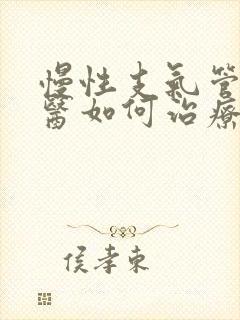 慢性支氣管
醫如何治療
侯孝東